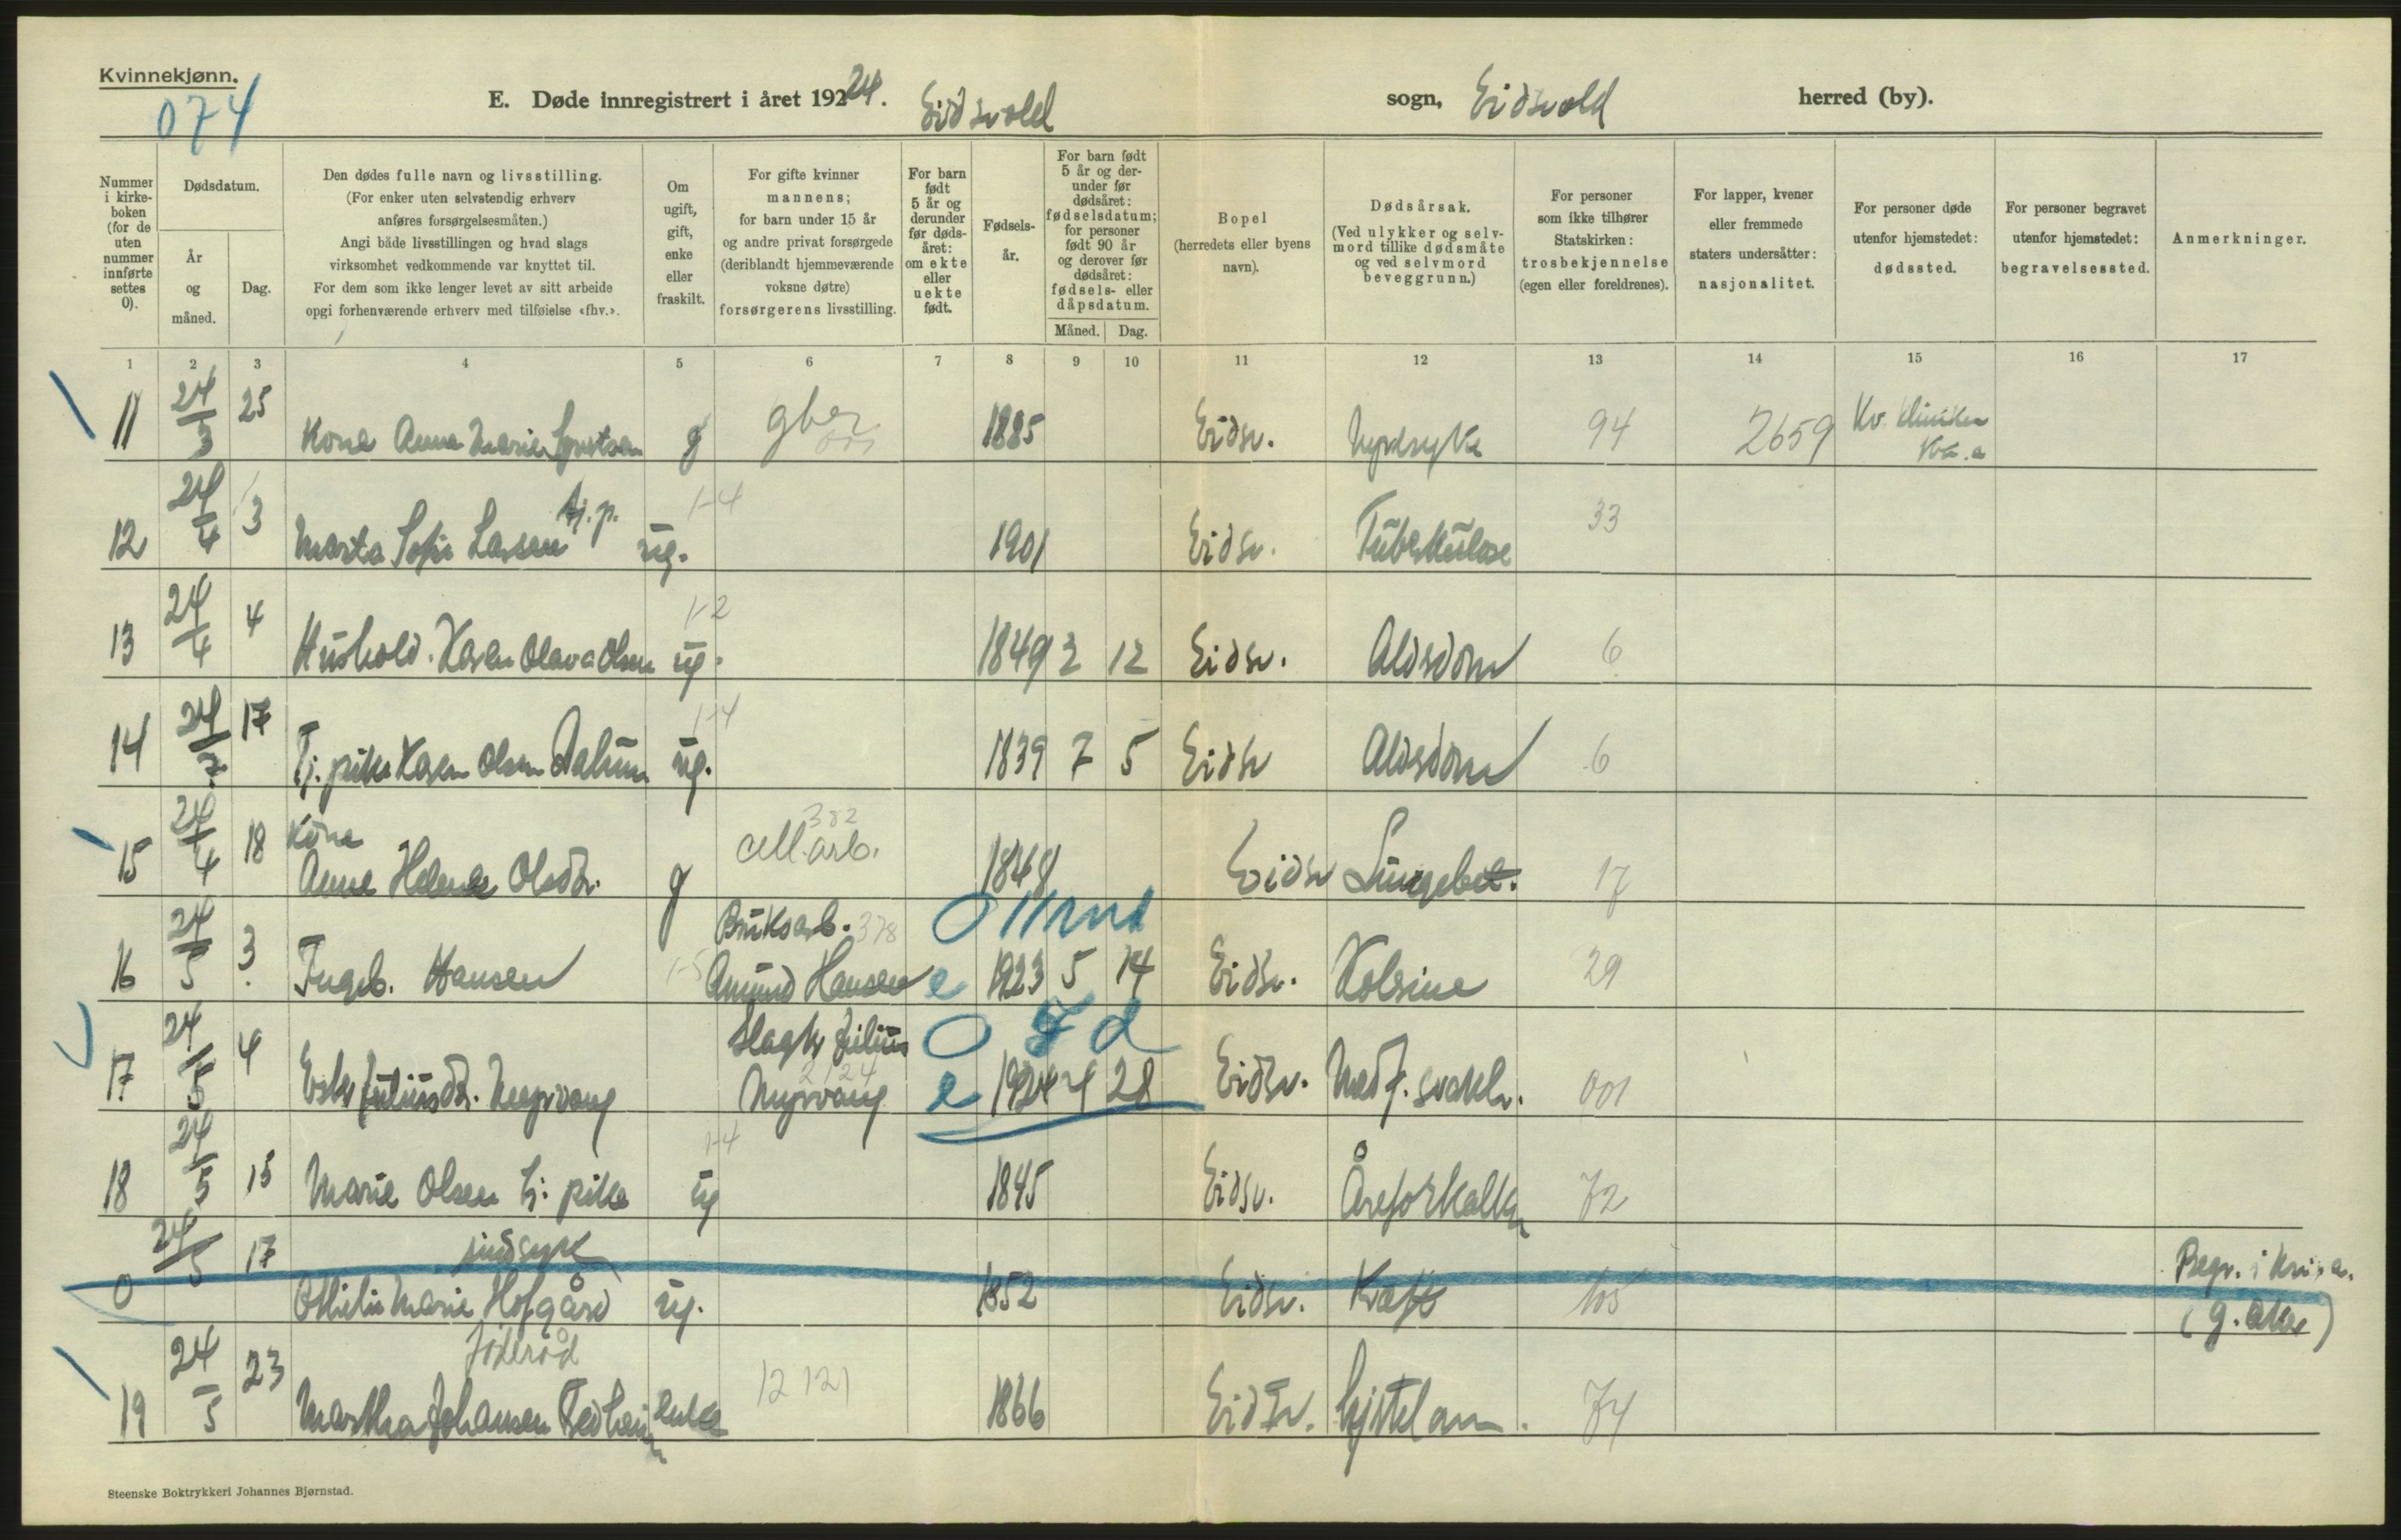 Kvinnekjønn.
074
E. Døde innregistrert i året 1924. Eidsvold sogn, Eidsvold herred (by).
Nummer i kirkeboken (for de uten nummer innførte settes 0).
Dødsdatum.
År og måned.
Dag.
Den dødes fulle navn og livsstilling.
(For enker uten selvstendig erhverv
anføres forsørgelsesmåten.)
Angi både livsstillingen og hvad slags
virksomhet vedkommende var knyttet til.
For dem som ikke lenger levet av sitt arbeide
opgi forhenværende erhverv med tilføielse «fhv.».
Om ugift, gift, enke eller fraskilt.
For gifte kvinner
mannens;
for barn under 15 år
og andre privat forsørgede
(deriblandt hjemmeværende
voksne døtre)
forsørgerens livsstilling.
For barn født 5 år og derunder før dødsåret: om ekte eller uekte født.
Fødselsår.
For barn født 5 år og derunder før dødsåret: fødselsdatum; for personer født 90 år og derover før dødsåret: fødsels- eller dåpsdatum.
Måned. Dag.
Bopel
(herredets eller byens
navn).
Dødsårsak.
(Ved ulykker og selvmord tillike dødsmåte og ved selvmord beveggrunn.)
For personer
som ikke tilhører
Statskirken:
trosbekjennelse
(egen eller foreldrenes).
For lapper, kvener
eller fremmede
staters undersåtter:
nasjonalitet.
For personer døde
utenfor hjemstedet:
dødssted.
For personer begravet
utenfor hjemstedet:
begravelsessted.
Anmerkninger.
1 2 3 4 5 6 7 8 9 10 11 12 13 14 15 16 17
11 24/3 25 Kone Anna Marie g gbr 1885 Eidsv. Nyresyke 94 2659 Kv. kliniken
12 24/4 3 Marta Sofie Larsen tj.p. ug. 1-4 1901 Eidsv. Tuberkulose 33
13 24/4 4 Hushold. Karen Olava Olsen ug. 1-2 1849 2 12 Eidsv. Aldsdom 6
14 24/ 17 Tj. pike Karen Olsen Dalum ug. 1-4 1839 7 5 Eidsv Aldsdom 6
15 24/4 18 Kone
Anne Helene Olsdtr. g cell.arb. 382 1848 Eidsv Lungebet. 17
16 24/5 3 Ingeb. Hansen Bruksarb. 378
1-5 Amund Hansen e 1923 5 14 Eidsv. Kolerine 29
17 24/5 4 Ester Juliusdtr. Nyrvang Slagtr Julius
2124
Nyrvang e 1924 4 28 Eidsv. Medf. svakh. 001
18 24/5 15 Marie Olsen tj. pike ug 1-4 1845 Eidsv. Åreforkalkn 72
0 24/5 17 sindsyk
Othilie Marie Hofgård ug. 1852 Eidsv. Kræft Begr. i Kri.a.
(g. Aker)
19 24/5 23
Martha Johansen enke 12 121 1866 Eidsv. Hjertelam. 74
Steenske Boktrykkeri Johannes Bjørnstad.